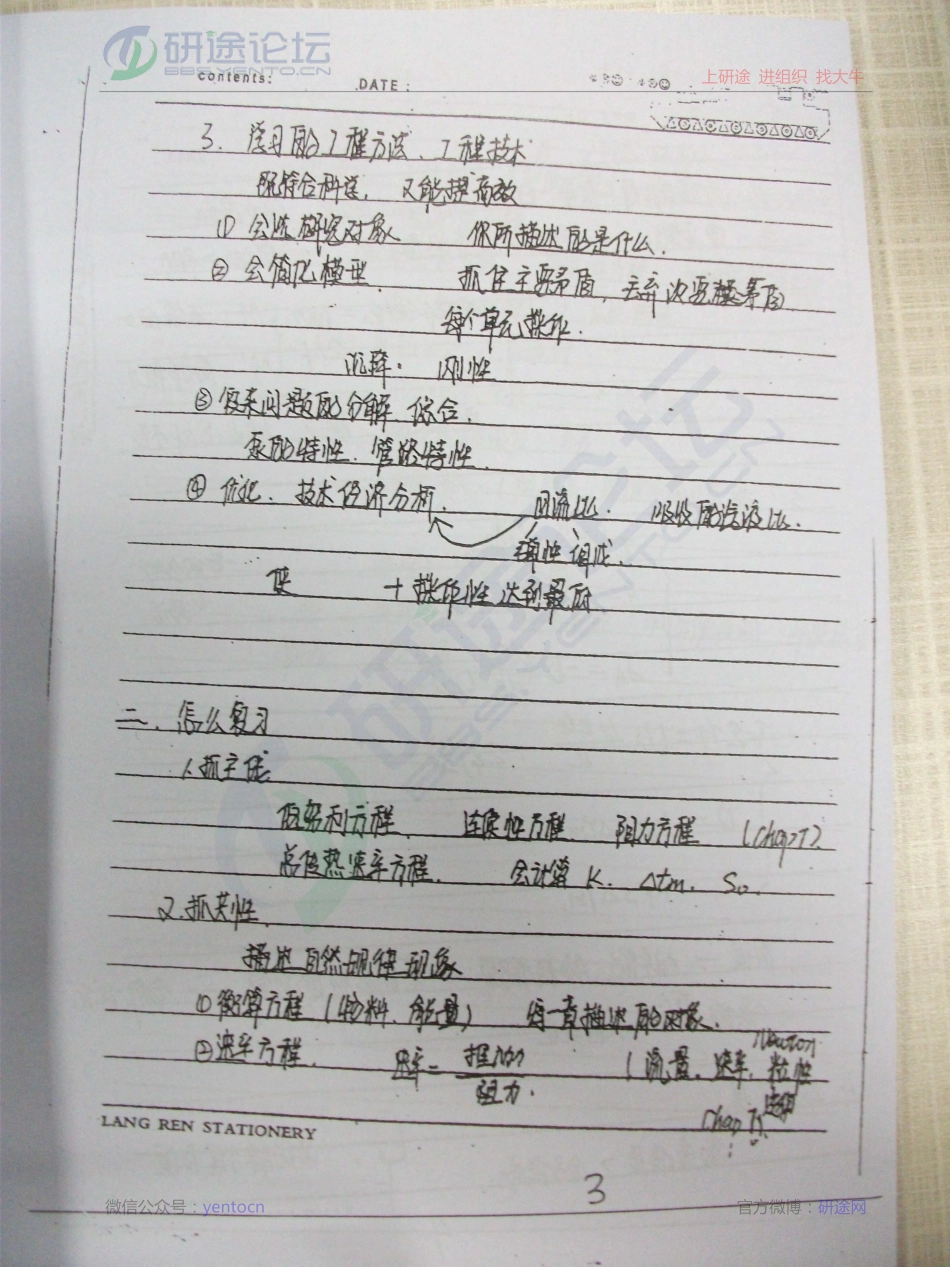 研途论坛
BBS.YENTO.CN
contents:
DATE :
上研途 进组织 找大牛
3. 学习的工程方法、工程技术
既符合科学, 又能提高效
① 会选研究对象 你所描述的是什么.
② 会简化模型. 抓住主要矛盾, 丢弃次要矛盾
每个单元操作.
沉降. 刚性
③ 复杂问题的分解.综合.
泵的特性. 管路特性.
④ 优化、技术经济分析. 回流比. 吸收的汽液比.
弹性
+ 操作性 达到最
二. 怎么复习
1.抓主线
伯努利方程. 连续性方程 阻力方程 (Chap1)
总传热速率方程. 会计算 K. Δtm. So.
2.抓共性.
描述自然规律现象
① 衡算方程 (物料、能量) 每一章描述的对象.
② 速率方程. 速率 = 推动力
阻力.
(流量. 速率, Newton
粘性
Chap
LANG REN STATIONERY
3
微信公众号:yentocn
官方微博:研途网
研途论坛
BBS.YENTO.CN